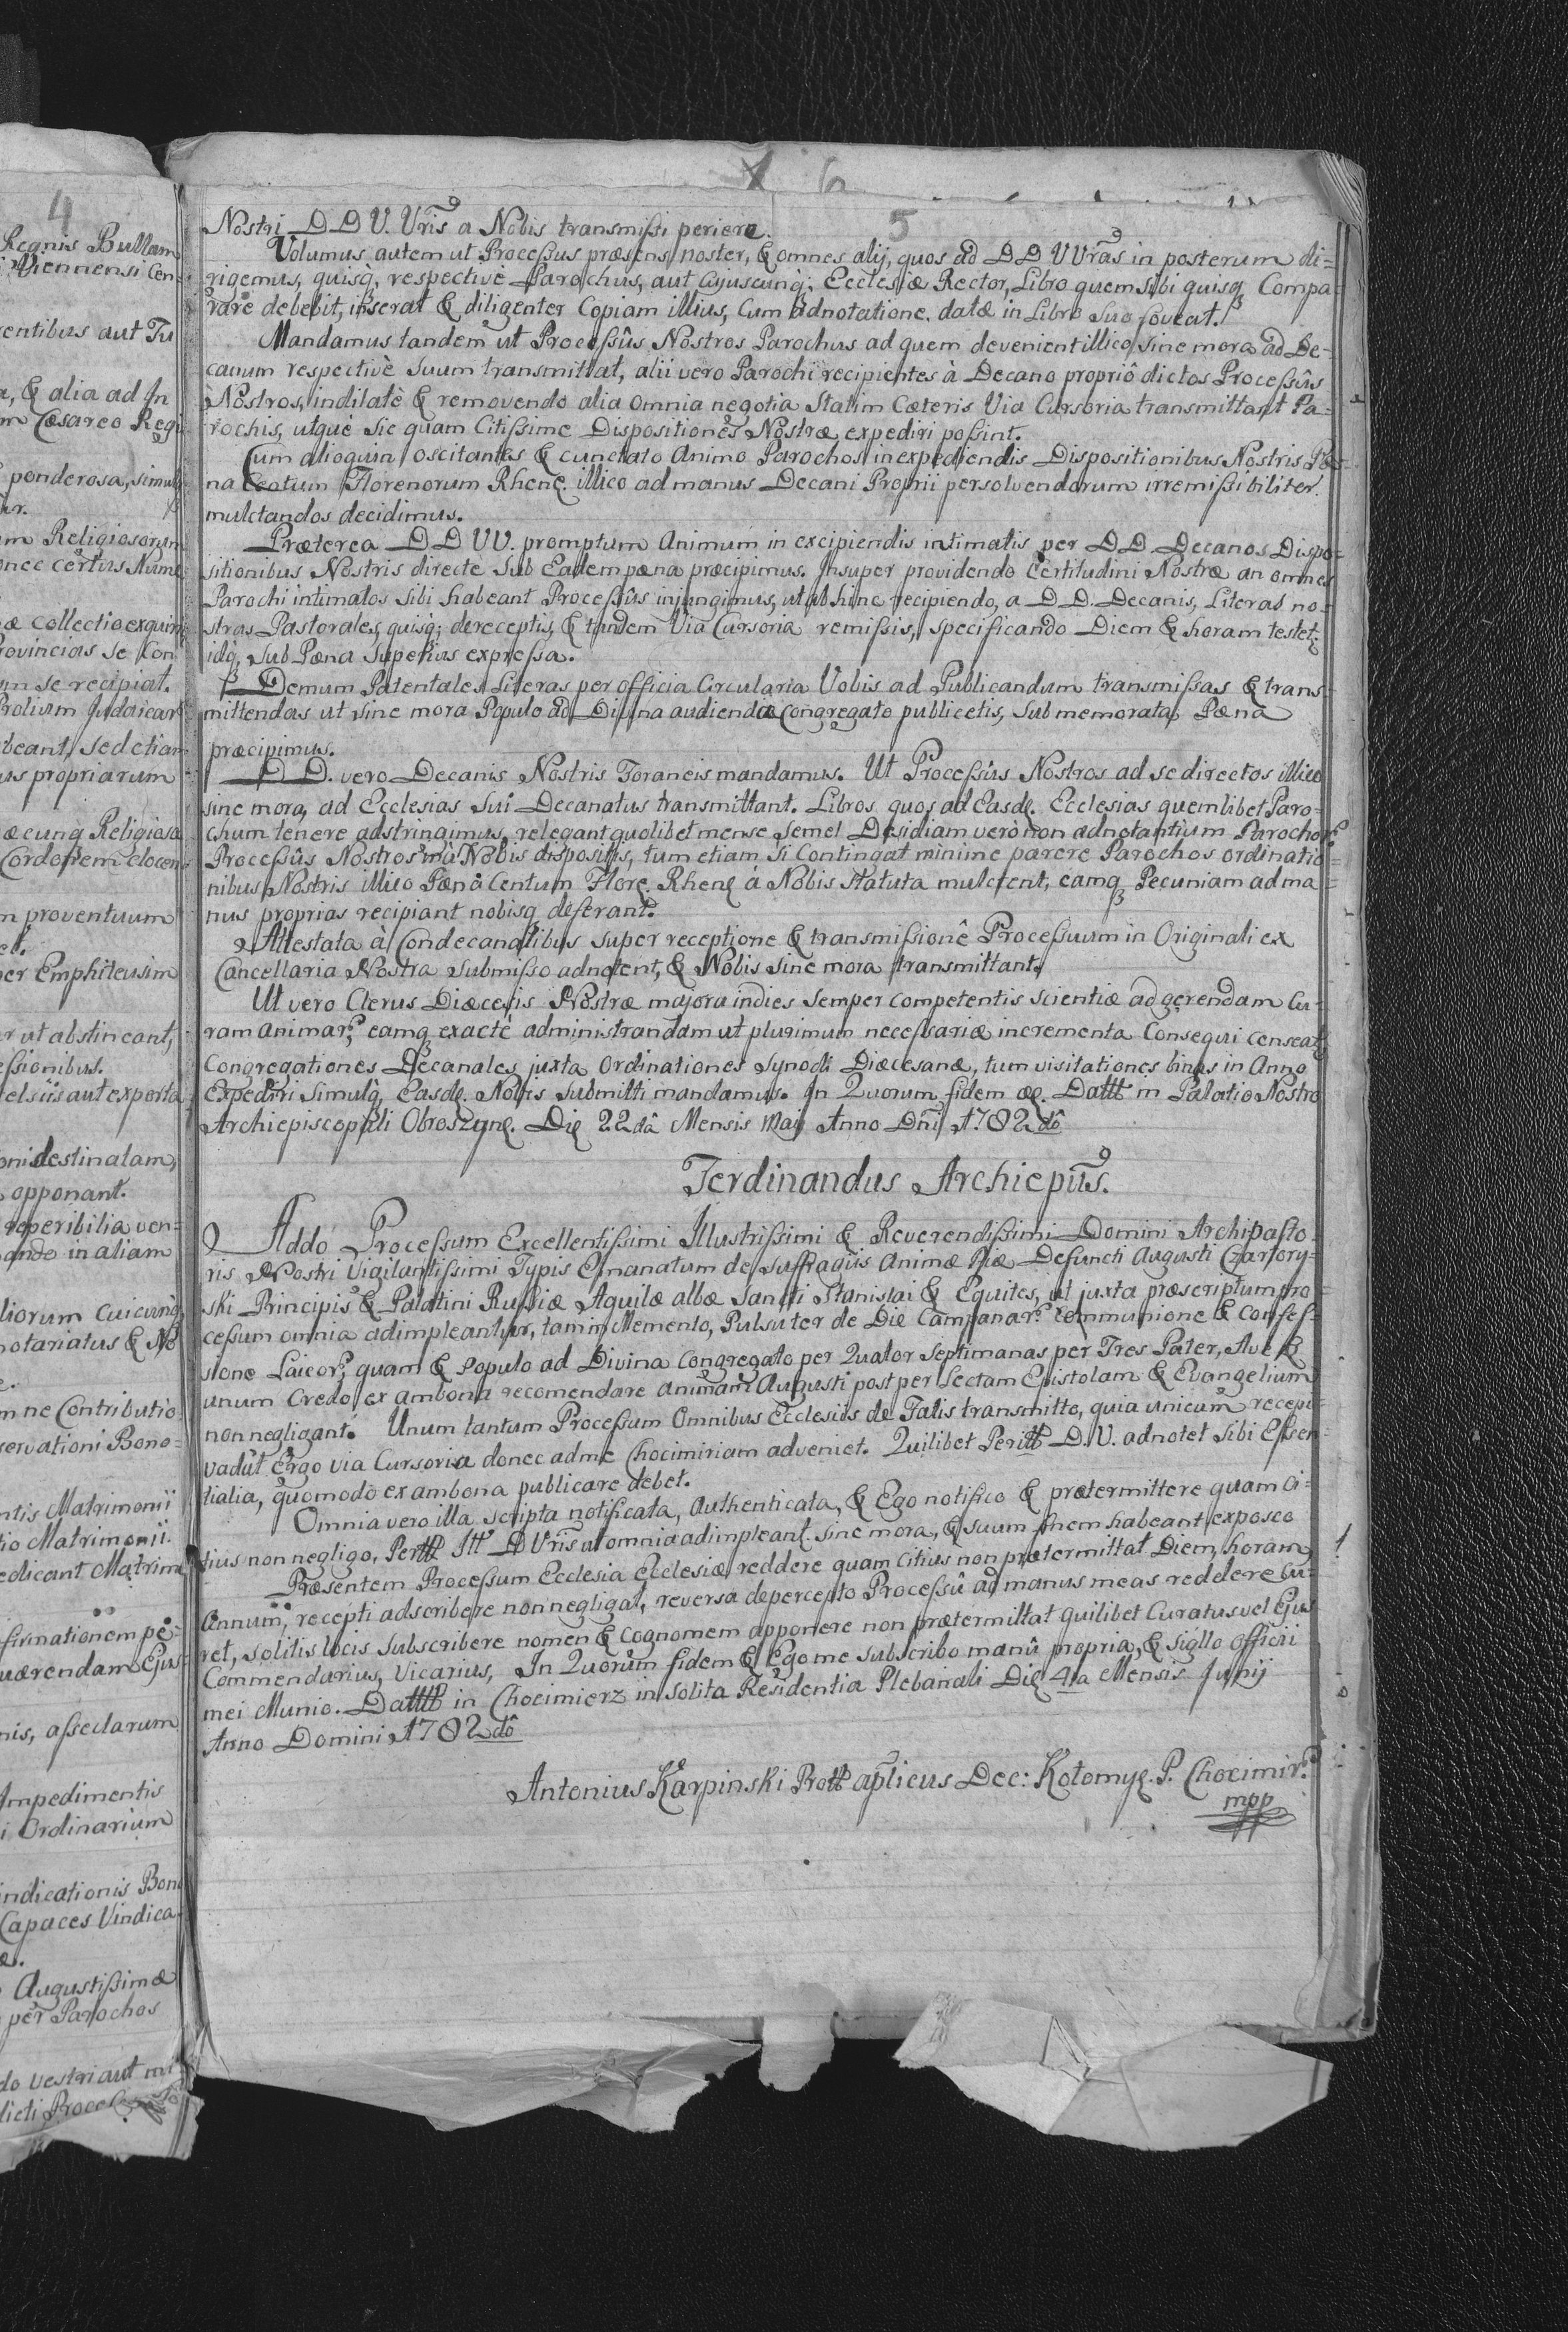 4
Regnis Bullam
Viennensi Con-
entibus aut Tu
a, & alia ad In
m Cæsareo Regi
ponderosa, simul
ur.
um Religiosorum
onec certus Nume
æ collectio exquiri
rovincias se Con
um se recipiat.
Prolium Judaicar
beant, sed etiam
us propriarum
æcunq Religiosa
Cordonem elocen
n proventuum
et.
per Emphiteusim
er ut abstineant,
essionibus.
elsiis aut exporta
oni destinatam,
opponant.
reperibilia ven=
ando in aliam
liorum cuicunq
notariatus & No
mne Contributio
servationi Bono=
ntis Matrimonii
tio Matrimonii.
edicant Matrim
firmationem pe=
uærendam Ejus
nis, asseclarum
Impedimentis
i Ordinarium
indicationis Bon
Capaces Vindica
Augustissimæ
per Parochos
do vestri aut mi
dicti Proces
6
5
Nostri D D V. Vris a Nobis transmissi periere.
Volumus autem ut Processus præsens noster, & omnes alij, quos ad D D V Vras in posterum di=
rigemus, quisq, respectivè Parochus, aut cujuscunq; Ecclesiæ Rector, Libro quem sibi quisq Compa=
rare debebit, inserat & diligenter Copiam illius, Cum adnotatione datæ in Libro Suo foveat.
Mandamus tandem ut Processûs Nostros Parochus ad quem devenient illico sine mora ad De=
canum respectivè Suum transmittat, alii vero Parochi recipientes à Decano propriô dictos Processûs
Nostros, indilatè & removendo alia Omnia negotia Statim Cæteris Via Cursoria transmittant Pa=
rochis, utquè Sic quam Citissime Dispositiones Nostræ expediri possint.
Cum alioquin oscitantes & cunctato Animo Parochos in expediendis Dispositionibus Nostris Pæ=
na Centum Florenorum Rhene. illico ad manus Decani Proprii persolvendorum irremissibiliter
mulctandos decidimus.
Præterea D D VV. promptum Animum in excipiendis intimatis per D D. Decanos Dispo=
sitionibus Nostris directe Sub Eadem pæna præcipimus. Insuper providendo Certitudini Nostræ an omnes
Parochi intimatos Sibi habeant Processûs injungimus, ut abhinc recipiendo, a D D. Decanis, Literas no=
stras Pastorales, quisq; de receptis, & tandem Via Cursoria remissis, specificando Diem & horam testet;
idq, Sub Pæna Superius expressa.
Demum Patentales Literas per officia Circularia Vobis ad Publicandum transmissas & trans=
mittendas ut sine mora Populo ad Divina audienda Congregato publicetis, Sub memorata Pæna
præcipimus.
D D. vero Decanis Nostris Foraneis mandamus. Ut Processûs Nostros ad se directos illico
sine mora, ad Ecclesias Sui Decanatus transmittant. Libros quos ad Easde. Ecclesias quemlibet Paro=
chum tenere adstringimus, relegant quolibet mense Semel Desidiam verò non adnotantium Parochor
Processûs Nostros à Nobis dispositis, tum etiam Si Contingat minime parere Parochos ordinatio=
nibus Nostris illico Pænâ Centum Flore. Rhene à Nobis Statuta mulctent, eamq Pecuniam ad ma=
nus proprias recipiant nobisq deferant.
Attestata à Condecanalibus super receptione & transmissionê Processuum in Originali ex
Cancellaria Nostra Submisso adnotent, & Nobis sine mora transmittant.
Ut vero Clerus Diæcesis Nostræ majora indies Semper competentis scientiæ ad gerendam Cu=
ram animar, eamq exactè administrandam ut plurimum necessariæ incrementa Consequi censeat
Congregationes Decanales juxta Ordinationes Synodi Diæcesanæ, tum visitationes binas in Anno
expediri Simulq, Easde. Nobis Submitti mandamus. In Quorum fidem æ. Dattt in Palatio Nostro
Archiepiscopali Obroszyne. Die 22dâ Mensis Maij Anno Dni 1782dô
Ferdinandus Archiepûs.
Addo Processum Excellentissimi Illustrissimi & Reverendissimi Domini Archipasto=
ris Nostri Vigilantissimi Typis Emanatum de Suffragiis Animæ Piæ Defuncti Augusti Czartory=
ski Principis & Palatini Russiæ Aquilæ albæ Sancti Stanislai & Equites, ut juxta præscriptum pro=
cessum omnia adimpleantur, tam in Memento, Pulsu ter de Die Campanar communione & confes=
sione Laicor, quam & Populo ad Divina Congregato per Quator Septimanas per Tres Pater, Ave &
unum Credo ex ambona recomendare animam Augusti post per Lectam Epistolam & Evangelium
non negligant. Unum tantum Processum Omnibus Ecclesiis de Fatis transmitto, quia unicum recepi=
vadat Ergo via Cursoria donec ad me Chocimiriam adveniet. Quilibet Perittt D. V. adnotet Sibi Essen=
tialia, quomodo ex ambona publicare debet.
Omnia vero illa scripta notificata, Authenticata, & Ego notifico & prætermittere quam ci=
tius non negligo, Perttt Itt D Vris ut omnia adimpleant sine mora, & suum finem habeant exposco
Præsentem Processum Ecclesia Ecclesiæ reddere quam Citius non prætermittat Diem, horam,
Annum, recepti adscribere non negligat, reversa de percepto Processû ad manus meas reddere Cu=
ret, solitis locis Subscribere nomen & cognomem apponere non prætermittat quilibet Curatus vel Ejus
Commendarius, Vicarius, In Quorum fidem & Ego me Subscribo manû propria, & Sigllo Officii
mei Munio. Dattt in Chocimierz in Solita Residentia Plebanali Die 4ta Mensis Junij
Anno Domini 1782dô
Antonius Karpinski Prott aplicus Dec: Kołomye. P. Chocimir
mpp